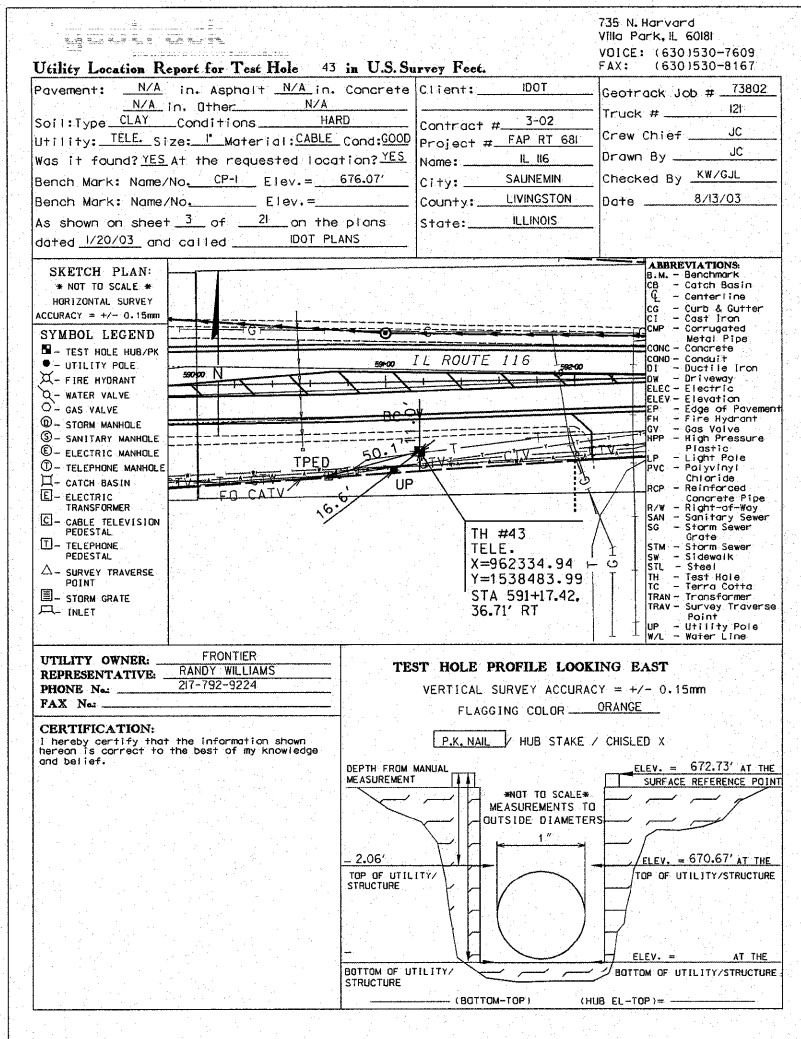 735 N. Harvard
Villa Park, IL 60181
VOICE: (630)530-7609
FAX: (630)530-8167
geotrack
Utility Location Report for Test Hole 43 in U.S. Survey Feet.
Pavement: N/A in. Asphalt N/A in. Concrete
N/A in. Other N/A
Soil: Type CLAY Conditions HARD
Utility: TELE. Size: 1" Material: CABLE Cond: GOOD
Was it found? YES At the requested location? YES
Bench Mark: Name/No. CP-1 Elev.= 676.07'
Bench Mark: Name/No. Elev.=
As shown on sheet 3 of 21 on the plans
dated 1/20/03 and called IDOT PLANS
Client: IDOT
Contract # 3-02
Project # FAP RT 681
Name: IL 116
City: SAUNEMIN
County: LIVINGSTON
State: ILLINOIS
Geotrack Job # 73802
Truck # 121
Crew Chief JC
Drawn By JC
Checked By KW/GJL
Date 8/13/03
SKETCH PLAN:
* NOT TO SCALE *
HORIZONTAL SURVEY
ACCURACY = +/- 0.15mm
SYMBOL LEGEND
- TEST HOLE HUB/PK
- UTILITY POLE
- FIRE HYDRANT
- WATER VALVE
- GAS VALVE
D - STORM MANHOLE
S - SANITARY MANHOLE
E - ELECTRIC MANHOLE
T - TELEPHONE MANHOLE
- CATCH BASIN
E - ELECTRIC
TRANSFORMER
C - CABLE TELEVISION
PEDESTAL
T - TELEPHONE
PEDESTAL
- SURVEY TRAVERSE
POINT
- STORM GRATE
- INLET
G
G
590+00
N
591+00
IL ROUTE 116
592+00
TPED
50.1'
T
T
CTV
CTV
CTV
FO CATV
16.6'
UP
G
T
G
TH #43
TELE.
X=962334.94
Y=1538483.99
STA 591+17.42,
36.71' RT
ABBREVIATIONS:
B.M. - Benchmark
CB - Catch Basin
℄ - Centerline
CG - Curb & Gutter
CI - Cast Iron
CMP - Corrugated
Metal Pipe
CONC - Concrete
COND - Conduit
DI - Ductile Iron
DW - Driveway
ELEC - Electric
ELEV - Elevation
EP - Edge of Pavement
FH - Fire Hydrant
GV - Gas Valve
HPP - High Pressure
Plastic
LP - Light Pole
PVC - Polyvinyl
Chloride
RCP - Reinforced
Concrete Pipe
R/W - Right-of-Way
SAN - Sanitary Sewer
SG - Storm Sewer
Grate
STM - Storm Sewer
SW - Sidewalk
STL - Steel
TH - Test Hole
TC - Terra Cotta
TRAN - Transformer
TRAV - Survey Traverse
Point
UP - Utility Pole
W/L - Water Line
UTILITY OWNER: FRONTIER
REPRESENTATIVE: RANDY WILLIAMS
PHONE No.: 217-792-9224
FAX No.:
CERTIFICATION:
I hereby certify that the information shown
hereon is correct to the best of my knowledge
and belief.
TEST HOLE PROFILE LOOKING EAST
VERTICAL SURVEY ACCURACY = +/- 0.15mm
FLAGGING COLOR ORANGE
P.K. NAIL / HUB STAKE / CHISLED X
DEPTH FROM MANUAL
MEASUREMENT
ELEV. = 672.73' AT THE
SURFACE REFERENCE POINT
*NOT TO SCALE*
MEASUREMENTS TO
OUTSIDE DIAMETERS
1"
2.06'
TOP OF UTILITY/
STRUCTURE
ELEV. = 670.67' AT THE
TOP OF UTILITY/STRUCTURE
BOTTOM OF UTILITY/
STRUCTURE
ELEV. = AT THE
BOTTOM OF UTILITY/STRUCTURE
(BOTTOM-TOP) (HUB EL-TOP)=